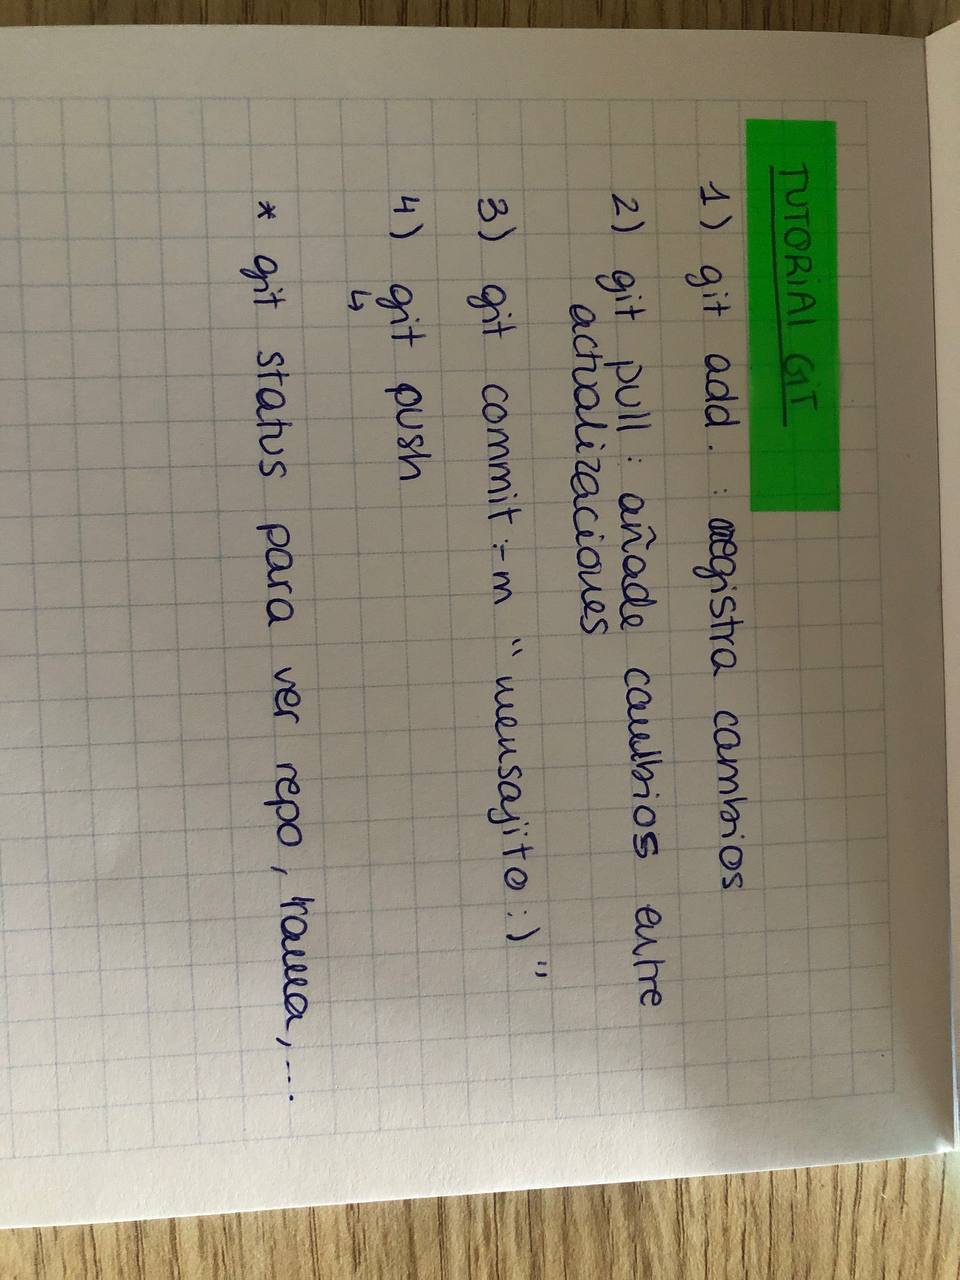 TUTORIAL GIT
1) git add . : registra cambios
2) git pull : añade cambios entre
actualizaciones
3) git commit :-m "mensajito :)"
4) git push
↳
* git status para ver repo, rama, ...